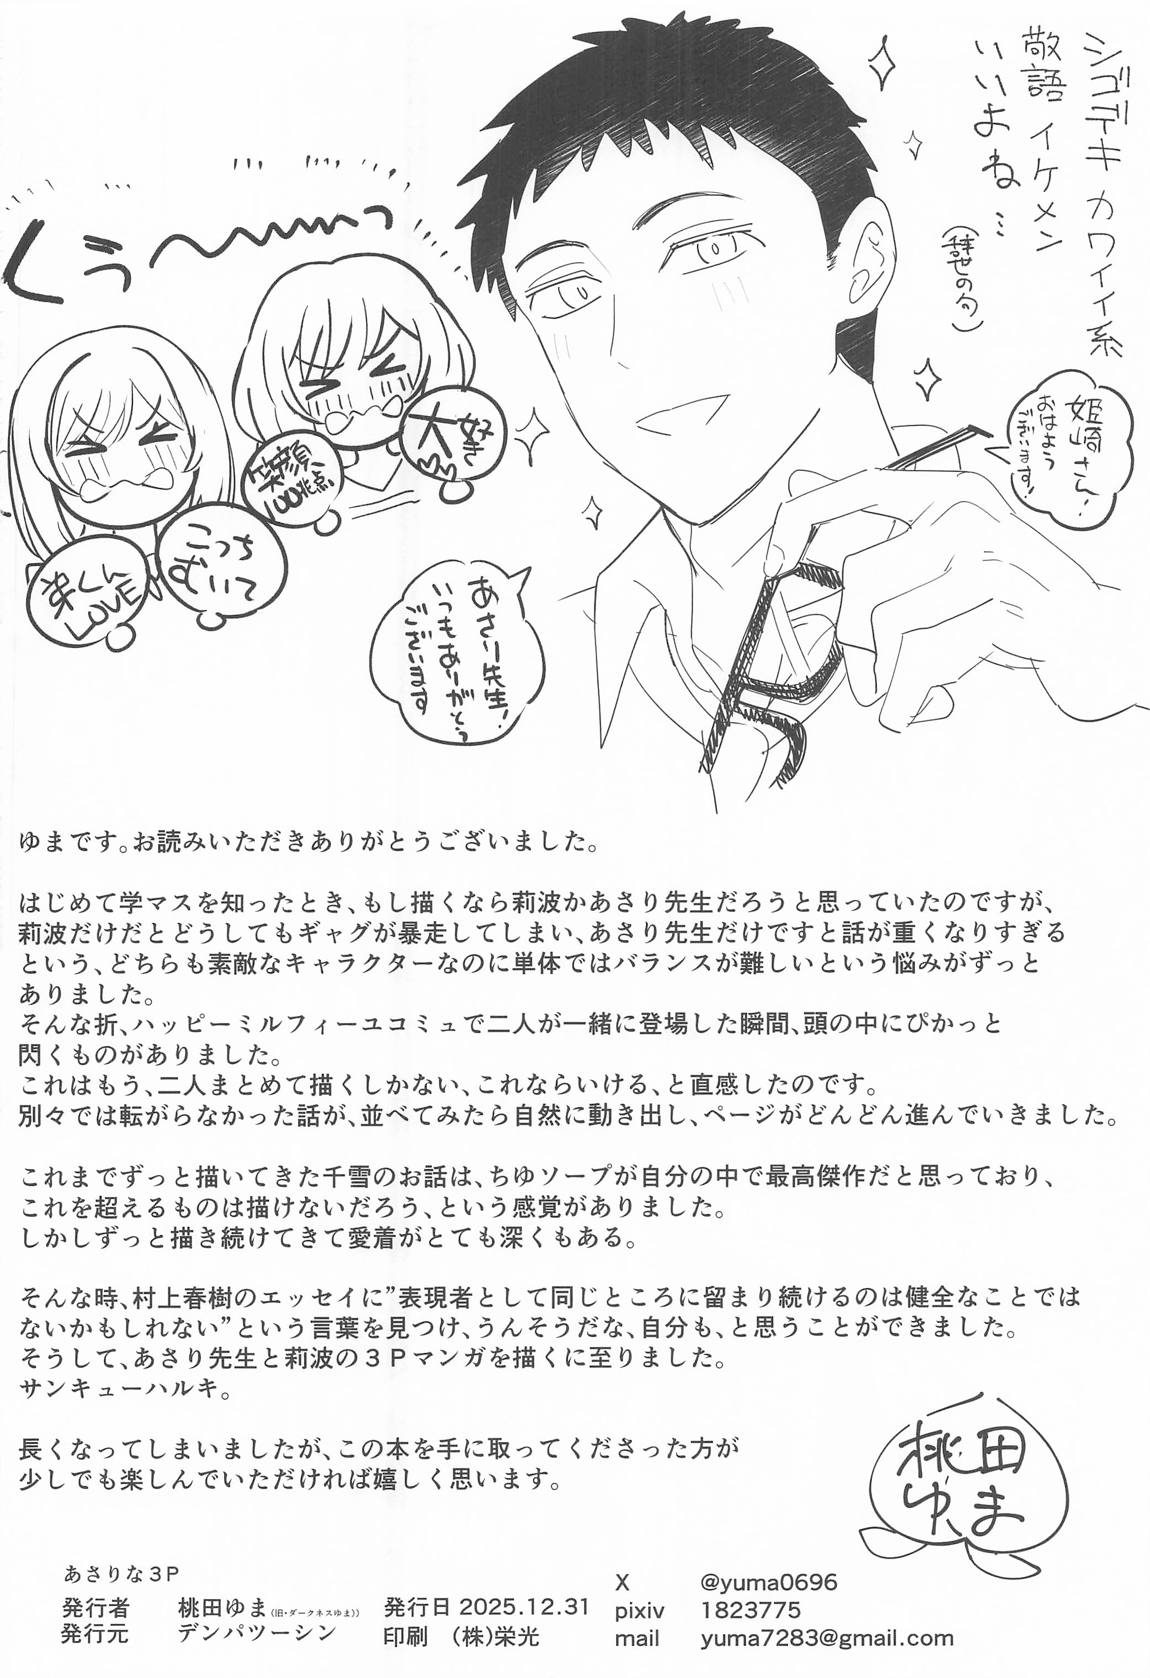 シゴデキカワイイ系
敬語イケメン
いいよね…
(辞世の句)
くぅ〜〜〜っ
姫崎さん!
おはよう
ございます!
大好き
笑顔
100兆点
こっち
むいて
弟くん
LOVE
あさり先生!
いつもありがとう
ございます
ゆまです。お読みいただきありがとうございました。
はじめて学マスを知ったとき、もし描くなら莉波かあさり先生だろうと思っていたのですが、
莉波だけだとどうしてもギャグが暴走してしまい、あさり先生だけですと話が重くなりすぎる
という、どちらも素敵なキャラクターなのに単体ではバランスが難しいという悩みがずっと
ありました。
そんな折、ハッピーミルフィーユコミュで二人が一緒に登場した瞬間、頭の中にぴかっと
閃くものがありました。
これはもう、二人まとめて描くしかない、これならいける、と直感したのです。
別々では転がらなかった話が、並べてみたら自然に動き出し、ページがどんどん進んでいきました。
これまでずっと描いてきた千雪のお話は、ちゆソープが自分の中で最高傑作だと思っており、
これを超えるものは描けないだろう、という感覚がありました。
しかしずっと描き続けてきて愛着がとても深くもある。
そんな時、村上春樹のエッセイに”表現者として同じところに留まり続けるのは健全なことでは
ないかもしれない”という言葉を見つけ、うんそうだな、自分も、と思うことができました。
そうして、あさり先生と莉波の３Ｐマンガを描くに至りました。
サンキューハルキ。
長くなってしまいましたが、この本を手に取ってくださった方が
少しでも楽しんでいただければ嬉しく思います。
桃田
ゆま
あさりな３Ｐ
発行者 桃田ゆま(旧・ダークネスゆま))
発行元 デンパツーシン
発行日 2025.12.31
印刷 (株)栄光
X @yuma0696
pixiv 1823775
mail yuma7283@gmail.com